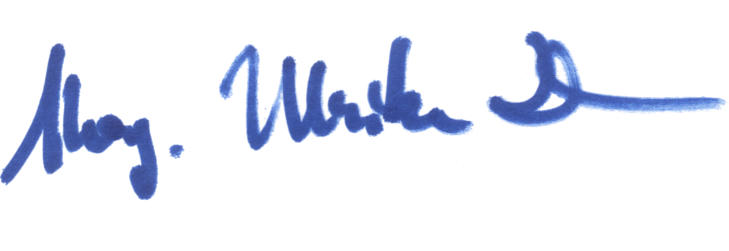 Mag. Ulrike